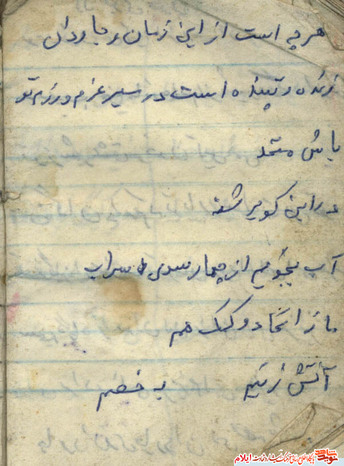 هرچه است از این زمان و جاودان
زنده و تپنده است در سیر عزم و رزم تو
باش متحد
در این کویر تشنه
آب بجوییم از چهار سوی سراب
ما ز اتحاد و کمک هم
آتش زنیم به خصم
ایلام